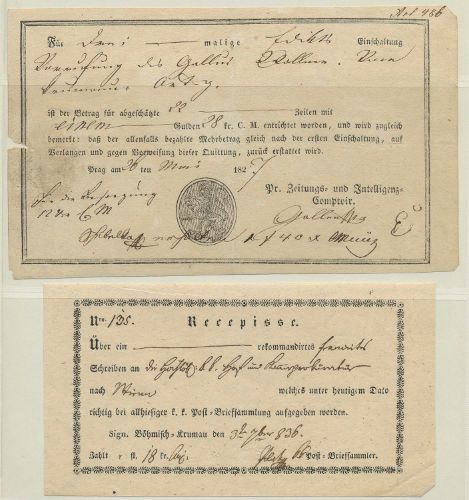 Art 486
Für Drei malige Edikts Einschaltung
des Gallus
ist der Betrag für abgeschätzte 22 Zeilen mit
einem Gulden 28 kr. C. M. entrichtet worden, und wird zugleich
bemerkt: daß der allenfalls bezahlte Mehrbetrag gleich nach der ersten Einschaltung, auf
Verlangen und gegen Vorweisung dieser Quittung, zurück erstattet wird.
Prag am 26 ten 1827
Pr. Zeitungs- und Intelligenz-
Comptoir.
für die Besorgung
12 kr CM
1 f 40 x Münz
Nro. 135.
Recepisse.
Über ein rekommandirtes
Schreiben an die k. k. Hof und Kammerprokuratur
nach Wien welches unter heutigem Dato
richtig bei allhiesiger k. k. Post-Briefsammlung aufgegeben worden.
Sign. Böhmisch-Krumau den 3t 7ber 836
Zahlt fl. 18 kr.
Post-Briefsammler.